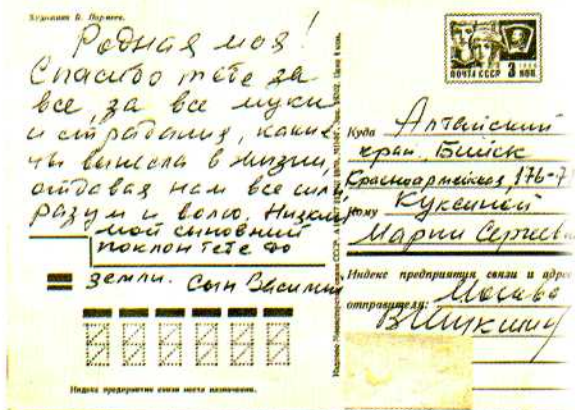 Художник В.
Родная моя!
Спасибо тебе за
все, за все муки
и страдания, какие
ты вынесла в жизни,
отдавая нам все силы
разум и волю. Низкий
мой сыновний
поклон тебе до
земли. Сын Василий
Индекс предприятия связи места назначения.
ПОЧТА СССР 3 КОП.
Куда Алтайский
край. Бийск
Красноармейская, 176-7
Кому Куксиной
Марии Сергеевн
Индекс предприятия связи и адрес
отправителя: Москва
В Шукшину